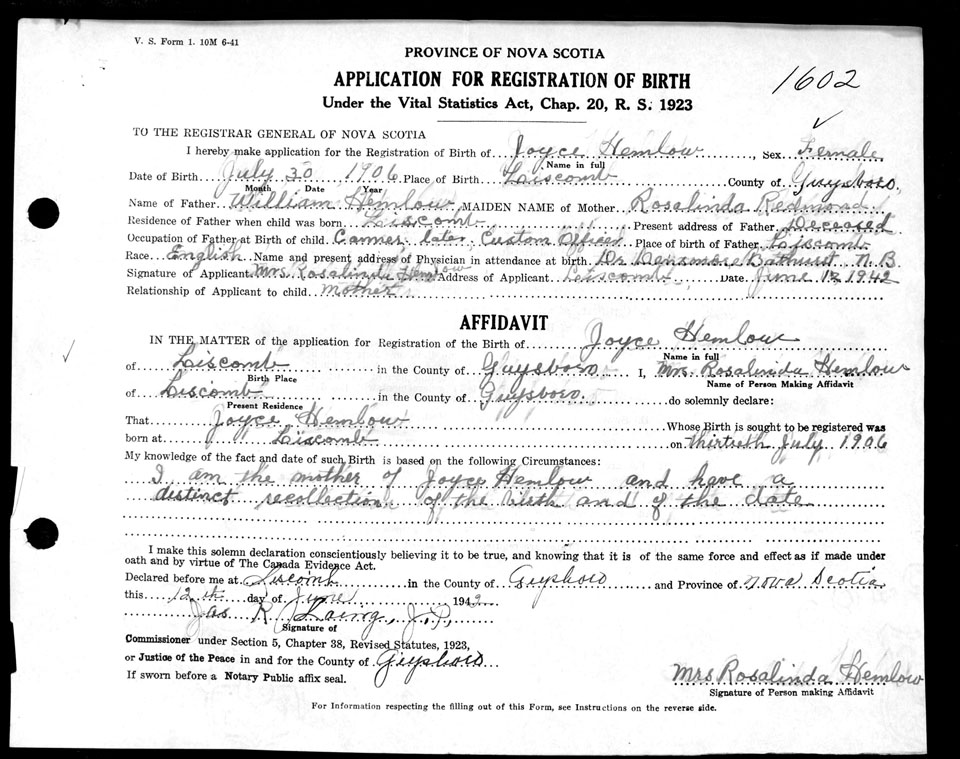 V. S. Form 1. 10M 6-41
PROVINCE OF NOVA SCOTIA
APPLICATION FOR REGISTRATION OF BIRTH
1602
Under the Vital Statistics Act, Chap. 20, R. S. 1923
TO THE REGISTRAR GENERAL OF NOVA SCOTIA
I hereby make application for the Registration of Birth of Joyce Hemlow, Sex Female
Name in full
Date of Birth July 30 1906 Place of Birth Liscomb County of Guysboro.
Month Date Year
Name of Father William Hemlow, MAIDEN NAME of Mother Rosalinda Redmond
Residence of Father when child was born Liscomb Present address of Father Deceased
Occupation of Father at Birth of child Canner later Custom Officer Place of birth of Father Liscomb
Race English Name and present address of Physician in attendance at birth Dr Bathurst N.B
Signature of Applicant Mrs. Rosalinda Hemlow Address of Applicant Leiscomb Date June 12 1942
Relationship of Applicant to child mother
AFFIDAVIT
IN THE MATTER of the application for Registration of the Birth of Joyce Hemlow
Name in full
of Liscomb in the County of Guysboro I, Mrs. Rosalinda Hemlow
Birth Place Name of Person Making Affidavit
of Liscomb in the County of Guysboro. do solemnly declare:
Present Residence
That Joyce Hemlow Whose Birth is sought to be registered was
born at Liscomb on thirtieth July 1906
My knowledge of the fact and date of such Birth is based on the following Circumstances:
I am the mother of Joyce Hemlow and have a
distinct recollection of the birth and of the date
I make this solemn declaration conscientiously believing it to be true, and knowing that it is of the same force and effect as if made under
oath and by virtue of The Canada Evidence Act.
Declared before me at Liscomb in the County of Guysboro and Province of Nova Scotia
this 12th day of June 1942
Jas R Laing, J.P.
Signature of
Commissioner under Section 5, Chapter 38, Revised Statutes, 1923,
or Justice of the Peace in and for the County of Guysboro
If sworn before a Notary Public affix seal.
Mrs Rosalinda Hemlow
Signature of Person making Affidavit
For Information respecting the filling out of this Form, see Instructions on the reverse side.